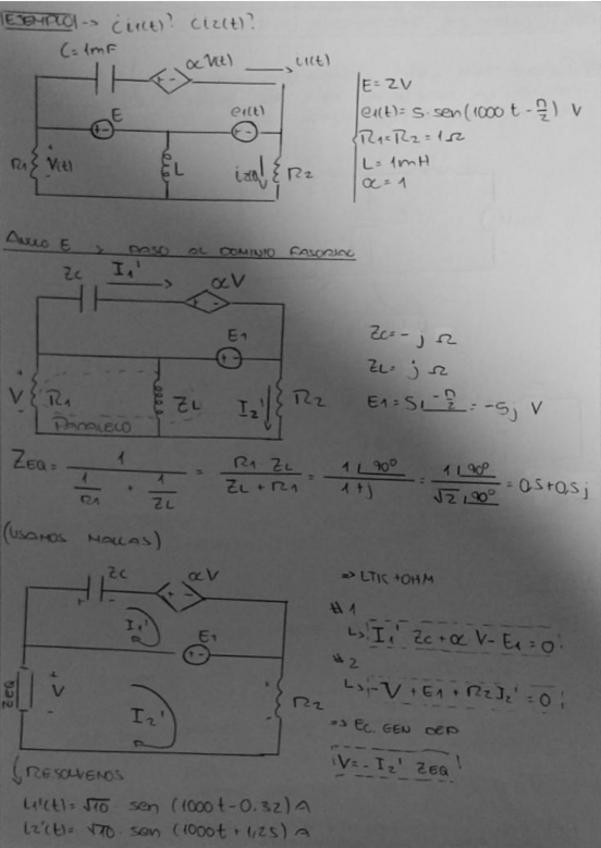 EJEMPLO -> ¿i1(t)? ¿i2(t)?
C=1mF
αV(t)
i1(t)
E
e1(t)
R1
V(t)
L
i2(t)
R2
E=2V
e1(t)=5·sen(1000t-π/2) V
R1=R2=1Ω
L=1mH
α=1
ANULO E -> PASO AL DOMINIO FASORIAL
Zc
I1'
αV
E1
V
R1
ZL
I2'
R2
PARALELO
Zc=-j Ω
ZL=j Ω
E1=5∟-π/2=-5j V
ZEQ=1/(1/R1+1/ZL)=R1 ZL/(ZL+R1)=1∟90°/(1+j)=1∟90°/(√2∟90°)=0,5+0,5j
(USAMOS MALLAS)
Zc
αV
I1'
E1
ZEQ
V
I2'
R2
=> LTK+OHM
#1
I1' Zc+αV-E1=0
#2
-V+E1+R2I2'=0
=> EC. GEN DEP
V=-I2' ZEQ
RESOLVEMOS
i1'(t)=√10·sen(1000t-0.32)A
i2'(t)=√10·sen(1000t+1,25)A